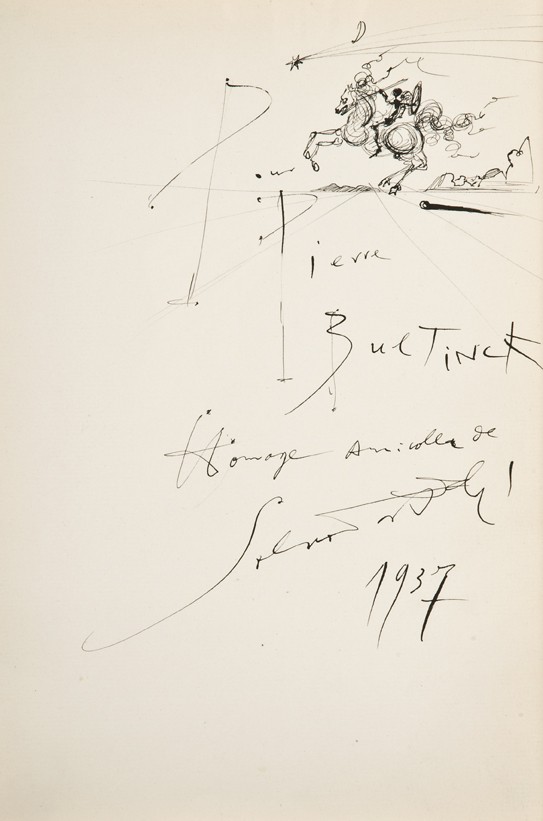 Pour
Pierre
BulTiNCK
Homage Amicolla de
Salvador Dalí
1937